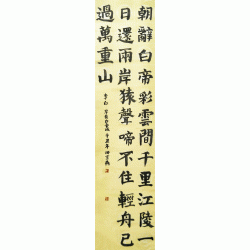 朝辭白帝彩雲間千里江陵一
日還兩岸猿聲啼不住輕舟已
過萬重山
李白